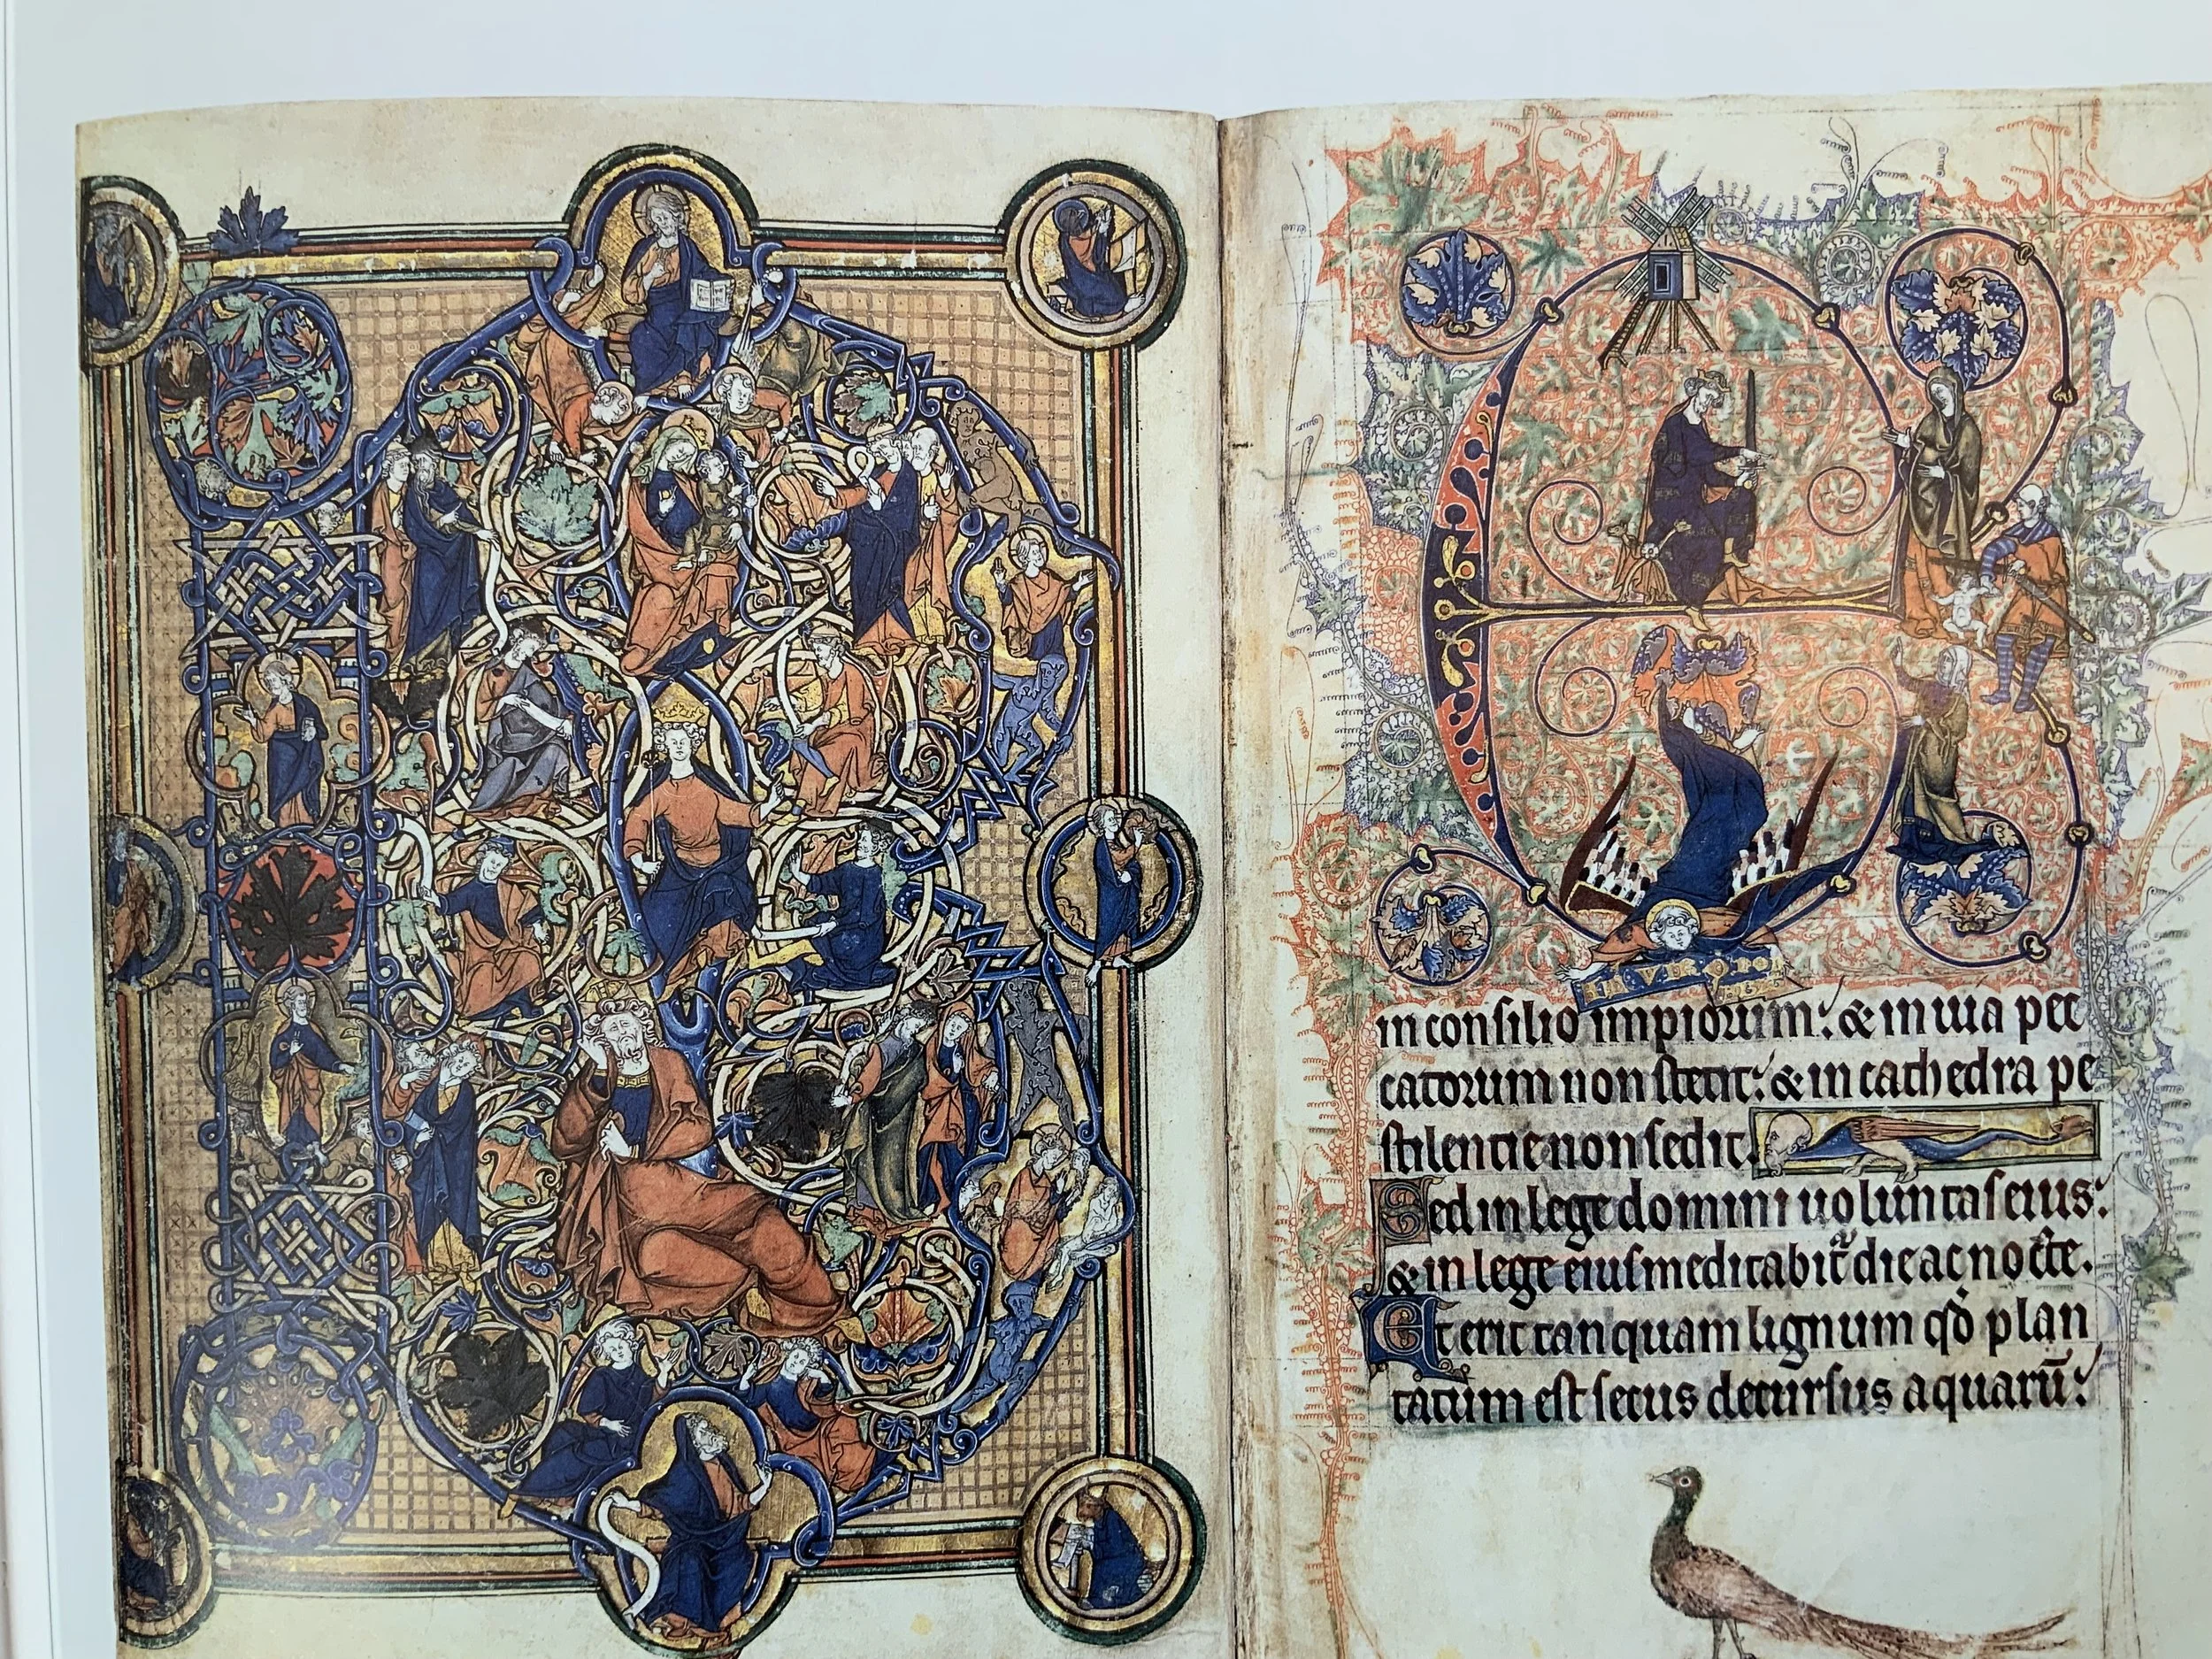 in consilio impiorum: & in uia pec
catorum non stetit: & in cathedra pe
stilencie non sedit.
Sed in lege domini uoluntas eius:
& in lege eius meditabit᷑ die ac nocte.
Et erit tanquam lignum qđ plan
tatum est secus decursus aquarū: